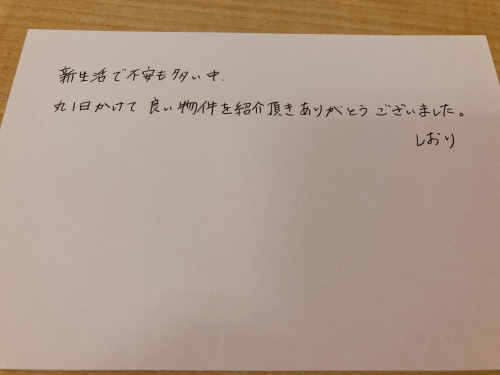 新生活で不安も多い中、
丸1日かけて良い物件を紹介頂きありがとうございました。
しおり